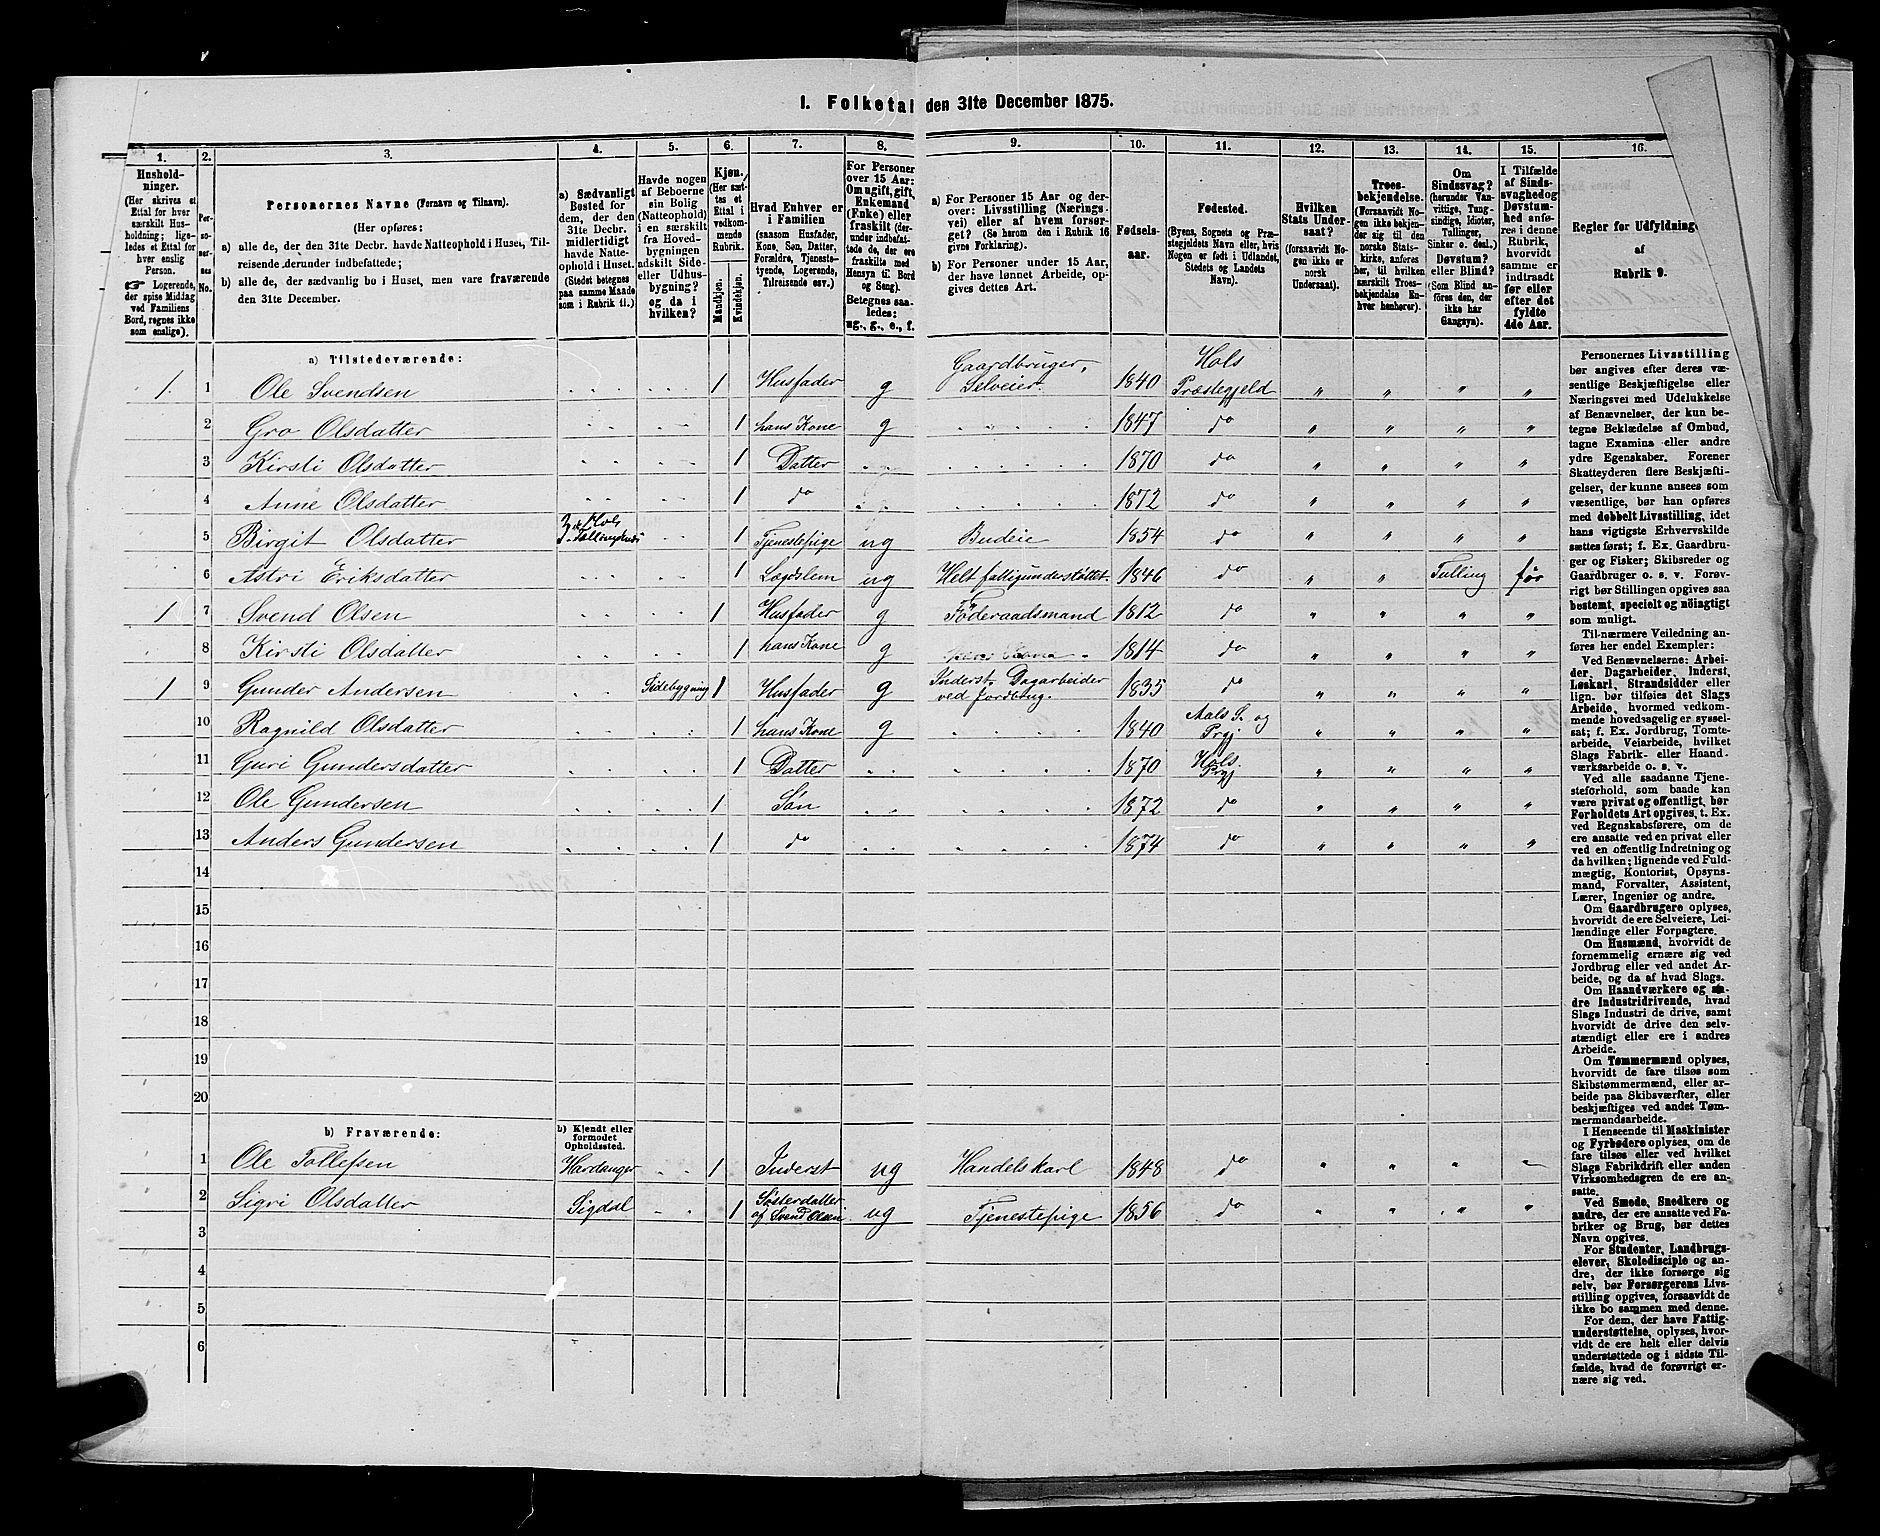 1. Folketal den 31te December 1875.
1. 2. 3. 4. 5. 6. 7. 8. 9. 10. 11. 12. 13. 14. 15. 16.
Hushold-
ninger.
(Her skrives et
Ettal for hver
særskilt Hus-
holdning; lige-
ledes et Ettal for
hver enslig
Person.
☞ Logerende,
der spise Middag
ved Familiens
Bord, regnes ikke
som enslige).
Per-
so-
ner-
nes
No.
Personernes Navne (Fornavn og Tilnavn).
(Her opføres:
a) alle de, der den 31te Decbr. havde Natteophold i Huset, Til-
reisende derunder indbefattede;
b) alle de, der sædvanlig bo i Huset, men vare fraværende
den 31te December.
a) Sædvanligt
Bosted for
dem, der den
31te Decbr.
midlertidigt
havde Natte-
ophold i Huset.
(Stedet betegnes
paa samme Maade
som i Rubrik 11.)
Havde nogen
af Beboerne
sin Bolig
(Natteophold)
i en særskilt
fra Hoved-
bygningen
adskilt Side-
eller Udhus-
bygning?
og da i
hvilken?
Kjøn.
(Her sæt-
tes et
Ettal i
vedkom-
mende
Rubrik.
Mandkjøn.
Kvindekjøn.
Hvad Enhver er
i Familien
(saasom Husfader,
Kone, Søn, Datter,
Forældre, Tjeneste-
tyende, Logerende,
Tilreisende osv.)
For Personer
over 15 Aar:
Om ugift, gift,
Enkemand
(Enke) eller
fraskilt (der-
under indbefat-
tede de, der ere
fraskilte med
Hensyn til Bord
og Seng).
Betegnes saa-
ledes:
ug., g., e., f.
a) For Personer 15 Aar og der-
over: Livsstilling (Nærings-
vei) eller af hvem forsør-
get? (Se herom den i Rubrik 16
givne Forklaring).
b) For Personer under 15 Aar,
der have lønnet Arbeide, op-
gives dettes Art.
Fødsels-
aar.
Fødested.
(Byens, Sognets og Præ-
stegjeldets Navn eller, hvis
Nogen er født i Udlandet,
Stedets og Landets
Navn).
Hvilken
Stats Under-
saat?
(forsaavidt No-
gen ikke er
norsk
Undersaat).
Troes-
bekjendelse.
(Forsaavidt No-
gen ikke bekjen-
der sig til den
norske Stats-
kirke, anføres
her, til hvilken
særskilt Troes-
bekjendelse En-
hver henhører).
Om
Sindssvag?
(herunder Van-
vittige, Tung-
sindige, Idioter,
Tullinger,
Sinker o. desl.)
Døvstum?
eller Blind?
(Som Blind an-
føres den, der
ikke har
Gangsyn).
I Tilfælde
af Sinds-
svaghed og
Døvstum-
hed anfø-
res i denne
Rubrik,
hvorvidt
samme er
indtraadt
før eller
efter det
fyldte
4de Aar.
Regler for Udfyldning
af
Rubrik 9.
a) Tilstedeværende:
1. 1 Ole Svendsen 1 Husfader g Gaardbruger, Selveier. 1840 Hols Præstegjeld " " " "
2 Gro Olsdatter 1 hans Kone g 1847 do " " " "
3 Kirsti Olsdatter 1 Datter 1870 do " " " "
4 Anne Olsdatter 1 do 1872 do " " " "
5 Birgit Olsdatter 1 Tjenestepige ug Budeie 1854 do " " " "
6 Astri Eriksdatter 1 Lægdslem ug Helt fattigunderstøttet. 1846 do " " Tulling før
1 7 Svend Olsen 1 Husfader g Föderaadsmand 1812 do " " " "
8 Kirsti Olsdatter 1 hans Kone g 1814 do " " " "
1 9 Gunder Andersen Sidebygning 1 Husfader g Inderst. Dagarbeider ved Jordbrug. 1835 do " " " "
10 Ragnild Olsdatter 1 hans Kone g 1840 Aals S. og Prgj. " " " "
11 Guri Gundersdatter 1 Datter 1870 Hols. Prgj " " " "
12 Ole Gundersen 1 Søn 1872 do " " " "
13 Anders Gundersen 1 do 1874 do " " " "
14
15
16
17
18
19
20
b) Fraværende:
b) Kjendt eller
formodet
Opholdssted.
1 Ole Tollefsen Hardanger 1 Inderst ug Handelskarl 1848 do " " " "
2 Sigri Olsdatter Sigdal 1 Søsterdatter af Svend Olsen ug Tjenestepige 1856 do " " " "
3
4
5
6
Personernes Livsstilling
bør angives efter deres væ-
sentlige Beskjæftigelse eller
Næringsvei med Udelukkelse
af Benævnelser, der kun be-
tegne Beklædelse af Ombud,
tagne Examina eller andre
ydre Egenskaber. Forener
Skatteyderen flere Beskjæfti-
gelser, der kunne ansees som
væsentlige, bør han opføres
med dobbelt Livsstilling, idet
hans vigtigste Erhvervskilde
sættes først; f. Ex. Gaardbru-
ger og Fisker; Skibsreder og
Gaardbruger o. s. v. Forøv-
rigt bør Stillingen opgives saa
bestemt, specielt og nöiagtigt
som muligt.
Til nærmere Veiledning an-
føres her endel Exempler:
Ved Benævnelserne: Arbei-
der, Dagarbeider, Inderst,
Løskarl, Strandsidder eller
lign. bør tilføies det Slags
Arbeide, hvormed vedkom-
mende hovedsagelig er syssel-
sat; f. Ex. Jordbrug, Tomte-
arbeide, Veiarbeide, hvilket
Slags Fabrik- eller Haand-
værksarbeide o. s. v.
Ved alle saadanne Tjene-
steforhold, som baade kan
være privat og offentligt, bør
Forholdets Art opgives, t. Ex.
ved Regnskabsførere, om de
ere ansatte ved en privat eller
ved en offentlig Indretning og
da hvilken; lignende ved Fuld-
mægtig, Kontorist, Opsyns-
mand, Forvalter, Assistent,
Lærer, Ingeniør og andre.
Om Gaardbrugere oplyses,
hvorvidt de ere Selveiere, Lei-
lændinge eller Forpagtere.
Om Husmænd, hvorvidt de
fornemmelig ernære sig ved
Jordbrug eller ved andet Ar-
beide, og da af hvad Slags.
Om Haandværkere og an-
dre Industridrivende, hvad
Slags Industri de drive, samt
hvorvidt de drive den selv-
stændigt eller ere i andres
Arbeide.
Om Tømmermænd oplyses,
hvorvidt de fare tilsøs som
Skibstømmermænd, eller ar-
beide paa Skibsværfter, eller
beskjæftiges ved andet Tøm-
mermandsarbeide.
I Henseende til Maskinister
og Fyrbødere oplyses, om de
fare tilsøs eller ved hvilket
Slags Fabrikdrift eller anden
Virksomhedsgren de ere an-
satte.
Ved Smede, Snedkere og
andre, der ere ansatte ved Fa-
briker og Brug, bør dettes
Navn opgives.
For Studenter, Landbrugs-
elever, Skoledisciple og an-
dre, der ikke forsørge sig
selv, bør Forsørgerens Livs-
stilling opgives, forsaavidt de
ikke bo sammen med denne.
For dem, der have Fattig-
understøttelse, oplyses, hvor-
vidt de ere helt eller delvis
understøttede og i sidste Til-
fælde, hvad de forøvrigt er-
nære sig ved.